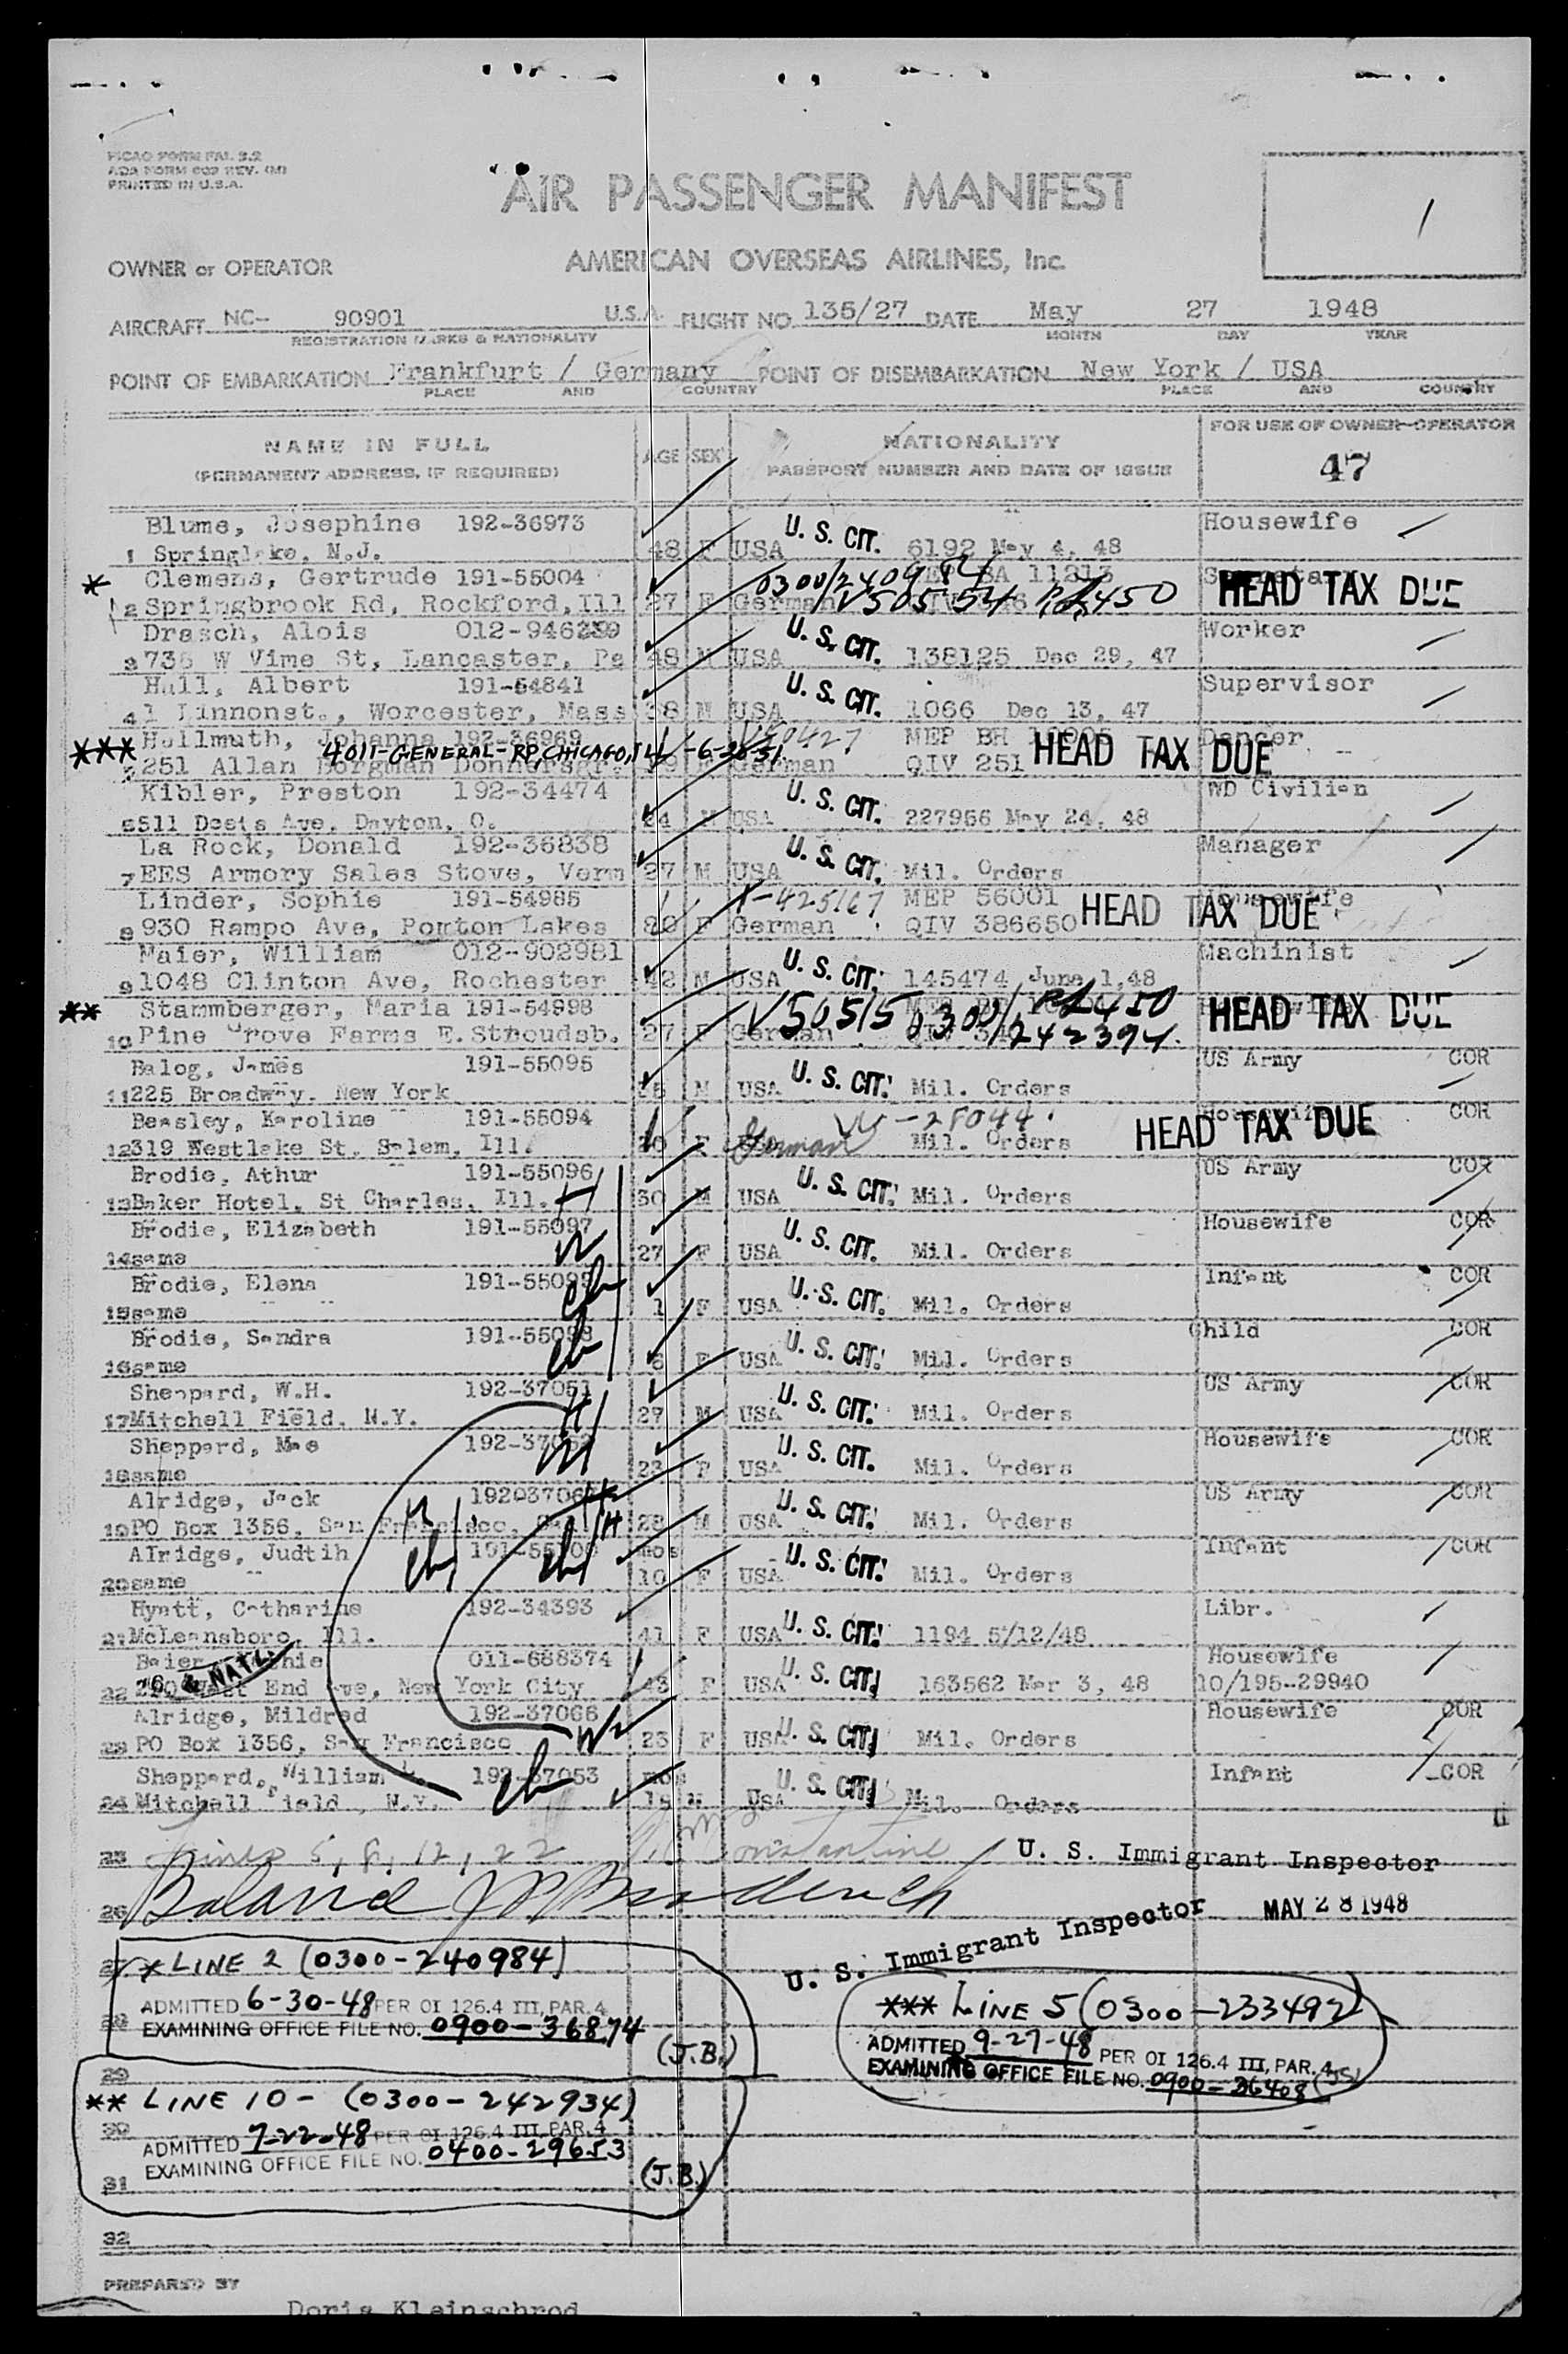 PICAO FORM FAL 3.2
AOA FORM 607 REV. (M)
PRINTED IN U.S.A.
AIR PASSENGER MANIFEST
1
OWNER or OPERATOR AMERICAN OVERSEAS AIRLINES, Inc.
AIRCRAFT NC- 90901 U.S.A. FLIGHT NO. 135/27 DATE May 27 1948
REGISTRATION MARKS & NATIONALITY MONTH DAY YEAR
POINT OF EMBARKATION Frankfurt / Germany POINT OF DISEMBARKATION New York / USA
PLACE AND COUNTRY PLACE AND COUNTRY
NAME IN FULL AGE SEX NATIONALITY FOR USE OF OWNER-OPERATOR
(PERMANENT ADDRESS, IF REQUIRED) PASSPORT NUMBER AND DATE OF ISSUE 47
Blume, Josephine 192-36973 U. S. CIT. Housewife
1 Springlake, N.J. 48 F USA 6192 May 4, 48
* Clemens, Gertrude 191-55004 0300/240984 11213 HEAD TAX DUE
2 Springbrook Rd, Rockford, Ill 27 F German V50554 PL450
Drasch, Alois 012-946239 U. S. CIT. Worker
3 736 W Vime St, Lancaster, Pa 48 M USA 138125 Dec 29, 47
Hall, Albert 191-54841 U. S. CIT. Supervisor
4 1 Linnonst., Worcester, Mass 38 M USA 1066 Dec 13, 47
*** Hollmuth, Johanna 192-36969 4011-GENERAL-RP, CHICAGO, ILL -6-26-51 MEP BH HEAD TAX DUE Dancer
5 251 Allan Borgman German QIV 251
Kibler, Preston 192-34474 U. S. CIT. WD Civilian
6 511 Deets Ave, Dayton, O. 24 M USA 227956 May 24, 48
La Rock, Donald 192-36838 U. S. CIT. Manager
7 EES Armory Sales Stove, Verm 27 M USA Mil. Orders
Linder, Sophie 191-54985 MEP 56001 HEAD TAX DUE Housewife
8 930 Rampo Ave, Pomton Lakes 80 F German QIV 386650
Maier, William 012-902981 U. S. CIT. Machinist
9 1048 Clinton Ave, Rochester 42 M USA 145474 June 1,48
** Stammberger, Maria 191-54998 V50515 0300/242394 PL450 HEAD TAX DUE
10 Pine Grove Farms E. Stroudsb. 27 F German
Balog, James 191-55095 U. S. CIT. US Army COR
11 225 Broadway, New York M USA Mil. Orders
Beasley, Karoline 191-55094 HEAD TAX DUE Housewife COR
12 319 Westlake St, Salem, Ill. F German Mil. Orders
Brodie, Athur 191-55096 H U. S. CIT. US Army COR
13 Baker Hotel, St Charles, Ill. 30 M USA Mil. Orders
Brodie, Elizabeth 191-55097 W U. S. CIT. Housewife COR
14 same 27 F USA Mil. Orders
Brodie, Elena ch U. S. CIT. Infant COR
15 same 1 F USA Mil. Orders
Brodie, Sandra 191-55098 ch U. S. CIT. Child COR
16 same 6 F USA Mil. Orders
Sheppard, W.H. 192-37051 H U. S. CIT. US Army COR
17 Mitchell Field, N.Y. 27 M USA Mil. Orders
Sheppard, Mae W U. S. CIT. Housewife COR
18 same 23 F USA Mil. Orders
Alridge, Jack H U. S. CIT. US Army COR
19 PO Box 1356, San Francisco, 28 M USA Mil. Orders
Alridge, Judtih ch mos U. S. CIT. Infant COR
20 same 10 F USA Mil. Orders
Hyatt, Catharine 192-34393 U. S. CIT. Libr.
21 McLeansboro, Ill. 41 F USA 1194 5/12/48
Baier, 011-688374 & NATZ. U. S. CIT. Housewife
22 West End Ave, New York City 43 F USA 163562 Mar 3, 48 10/195-29940
Alridge, Mildred 192-37066 W U. S. CIT. Housewife COR
23 PO Box 1356, San Francisco 23 F USA Mil. Orders
Sheppard, William 192-37053 ch mos U. S. CIT. Infant COR
24 Mitchell Field, N.Y. USA Mil. Orders
25 Lines 5, 8, 12, 22 Constantine U. S. Immigrant Inspector
26 MAY 28 1948
U. S. Immigrant Inspector
27 * LINE 2 (0300-240984)
28 ADMITTED 6-30-48 PER OI 126.4 III, PAR. 4
EXAMINING OFFICE FILE NO. 0900-36874 (J.B.)
*** LINE 5 (0300-233492)
ADMITTED 9-27-48 PER OI 126.4 III, PAR. 4
EXAMINING OFFICE FILE NO. 0900-36408
29
** LINE 10- (0300-242934)
30 ADMITTED 7-22-48 PER OI 126.4 III, PAR. 4
EXAMINING OFFICE FILE NO. 0400-29653
31 (J.B.)
32
PREPARED BY
Doris Kleinschrod